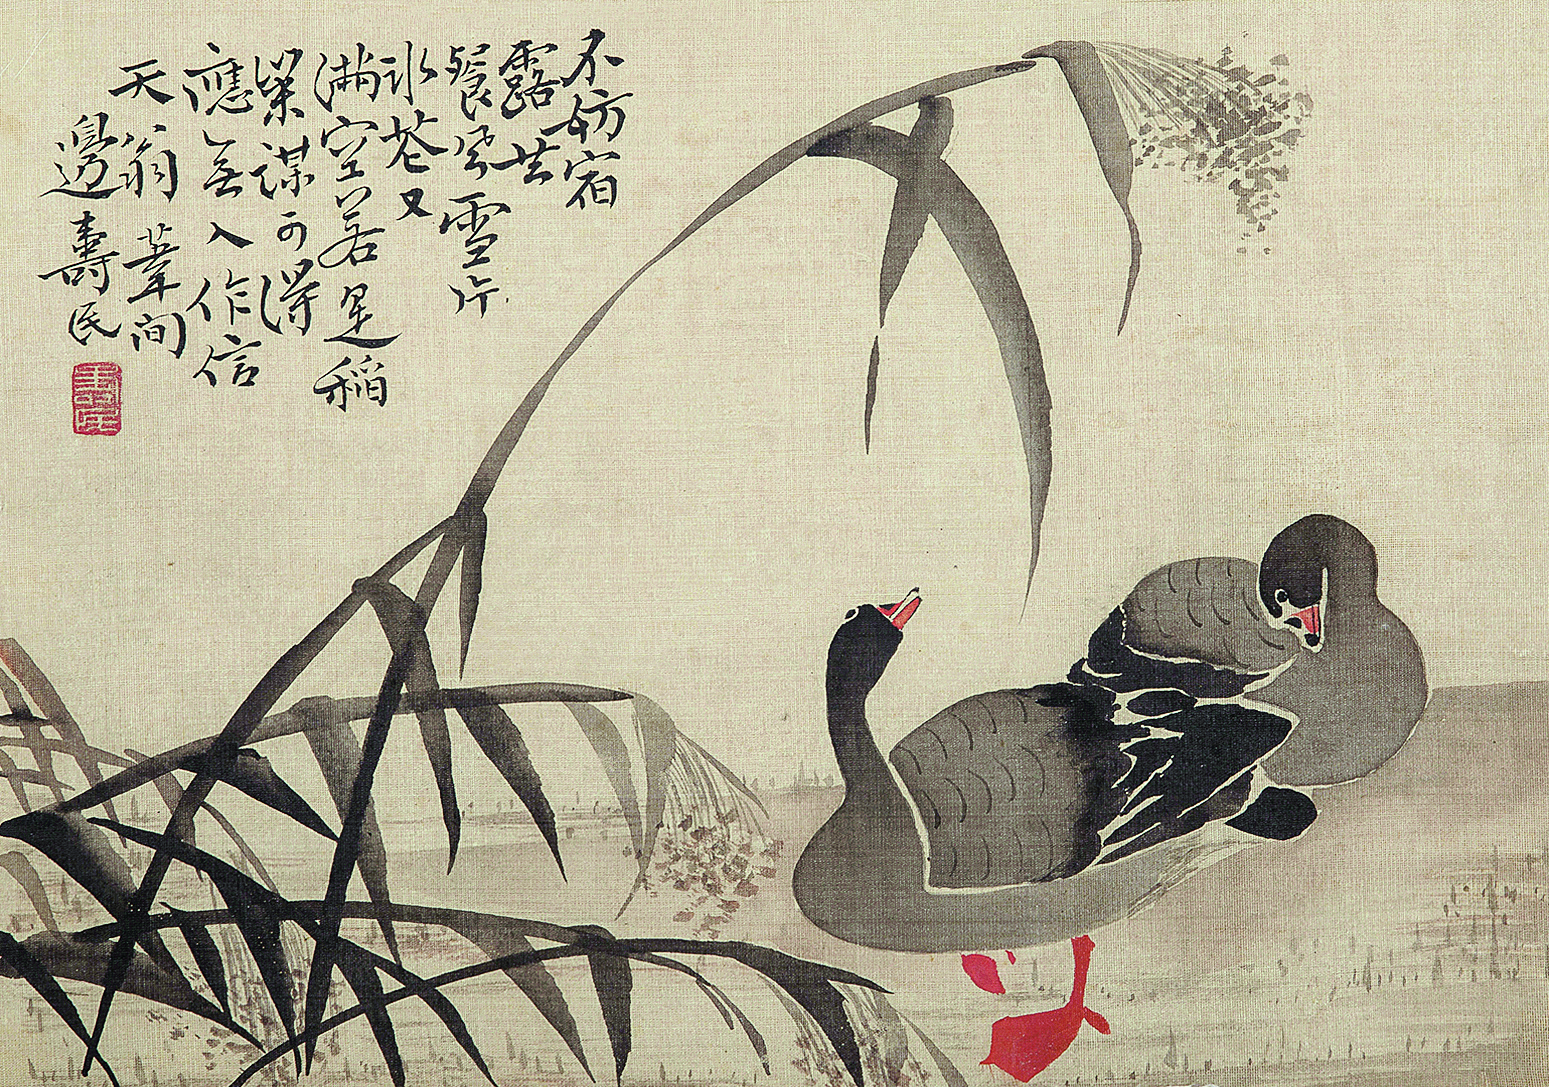 不妨宿
露共
餐風雪片
冰花又
滿空若是稻
粱謀可得
應無人作信
天翁 葦間
邊壽民
壽民